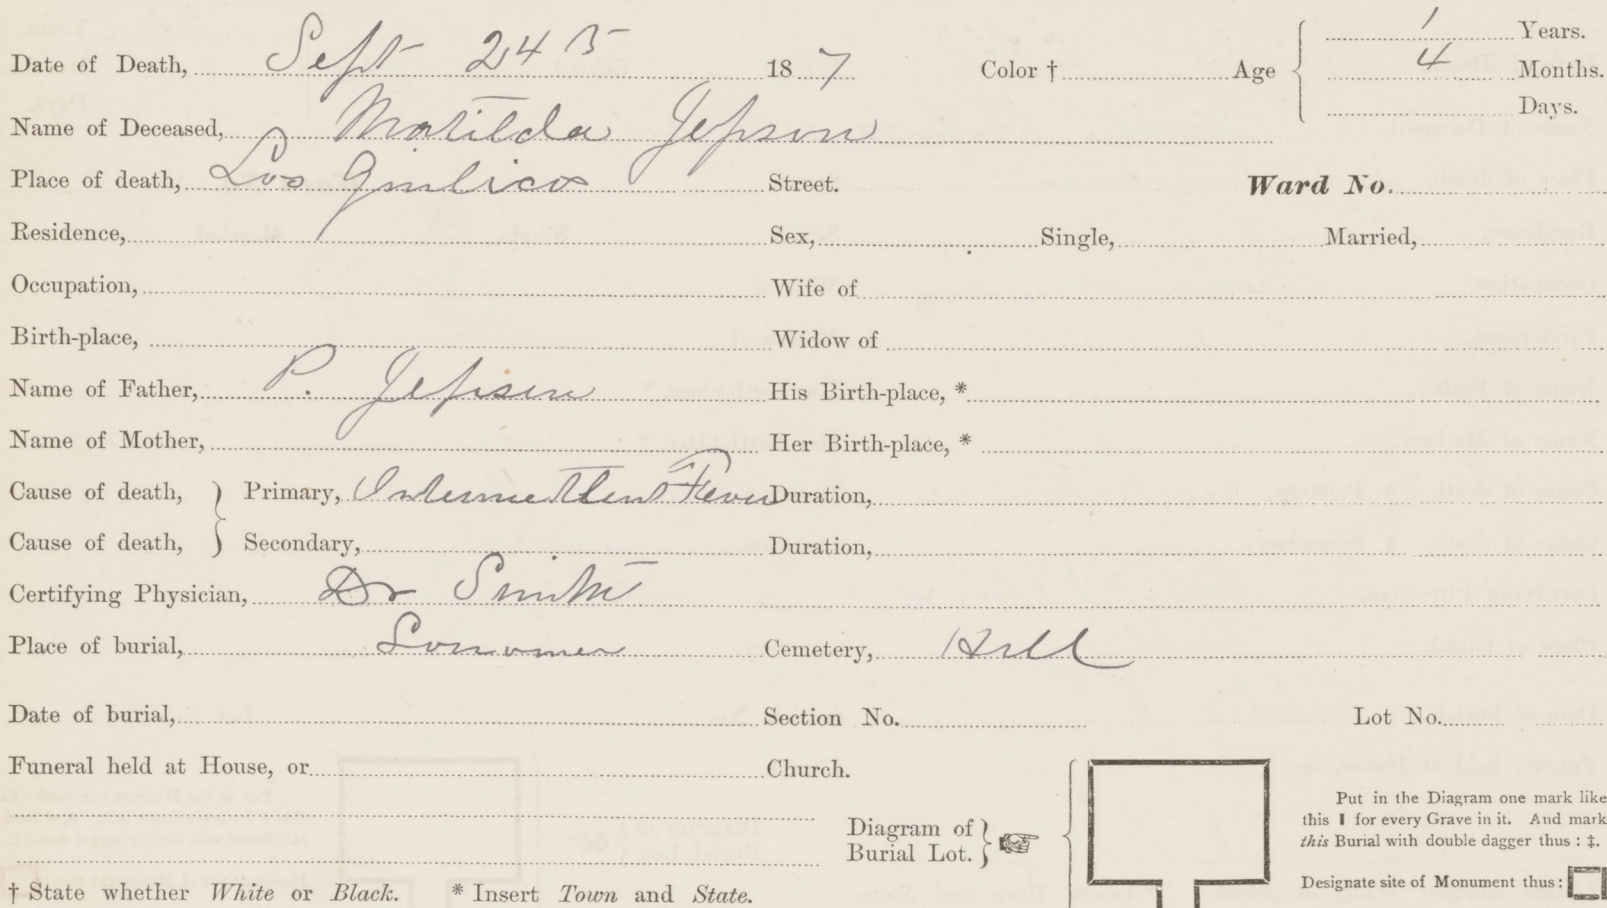 Date of Death, Sept 24 18 7 Color † Age 1 Years.
4 Months.
Days.
Name of Deceased, Matilda Jepson
Place of death, Los Guilicos Street. Ward No.
Residence, Sex, Single, Married,
Occupation, Wife of
Birth-place, Widow of
Name of Father, P. Jepsen His Birth-place, *
Name of Mother, Her Birth-place, *
Cause of death, } Primary, Intermittent Fever Duration,
Cause of death, } Secondary, Duration,
Certifying Physician, Dr Smith
Place of burial, Cemetery, Hill
Date of burial, Section No. Lot No.
Funeral held at House, or Church.
Diagram of
Burial Lot. }
Put in the Diagram one mark like
this I for every Grave in it. And mark
this Burial with double dagger thus : ‡.
Designate site of Monument thus :
† State whether White or Black. * Insert Town and State.